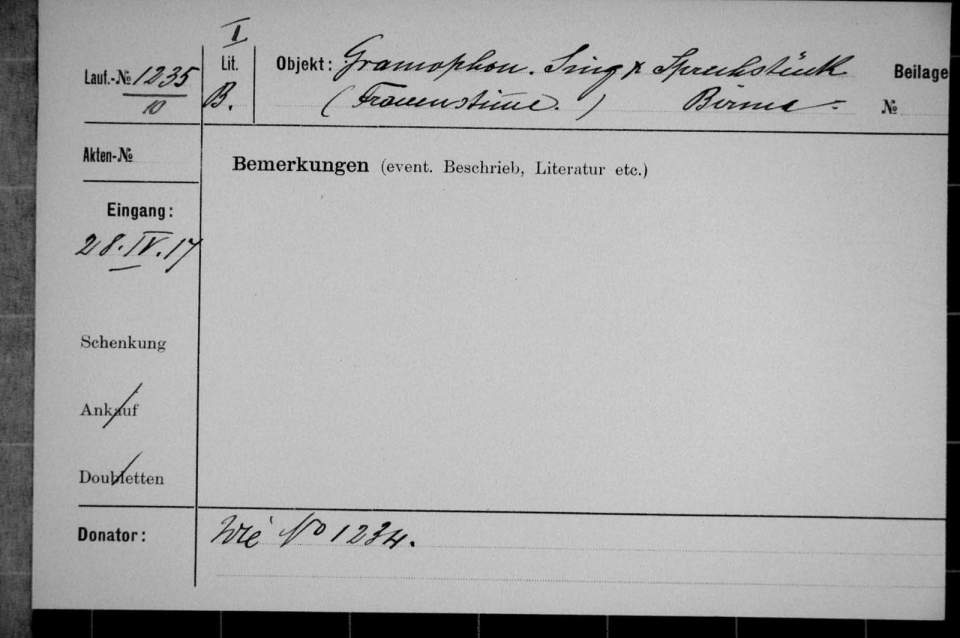 I
Lauf.-№ 1235
10
Lit.
B.
Objekt: Gramophon. Sing & Sprechstück
(Frauenstimme.) Birma -
Beilage
№
Akten-№
Bemerkungen (event. Beschrieb, Literatur etc.)
Eingang:
28.IV.17
Schenkung
Ankauf
Doubletten
Donator: Wie No 1234.